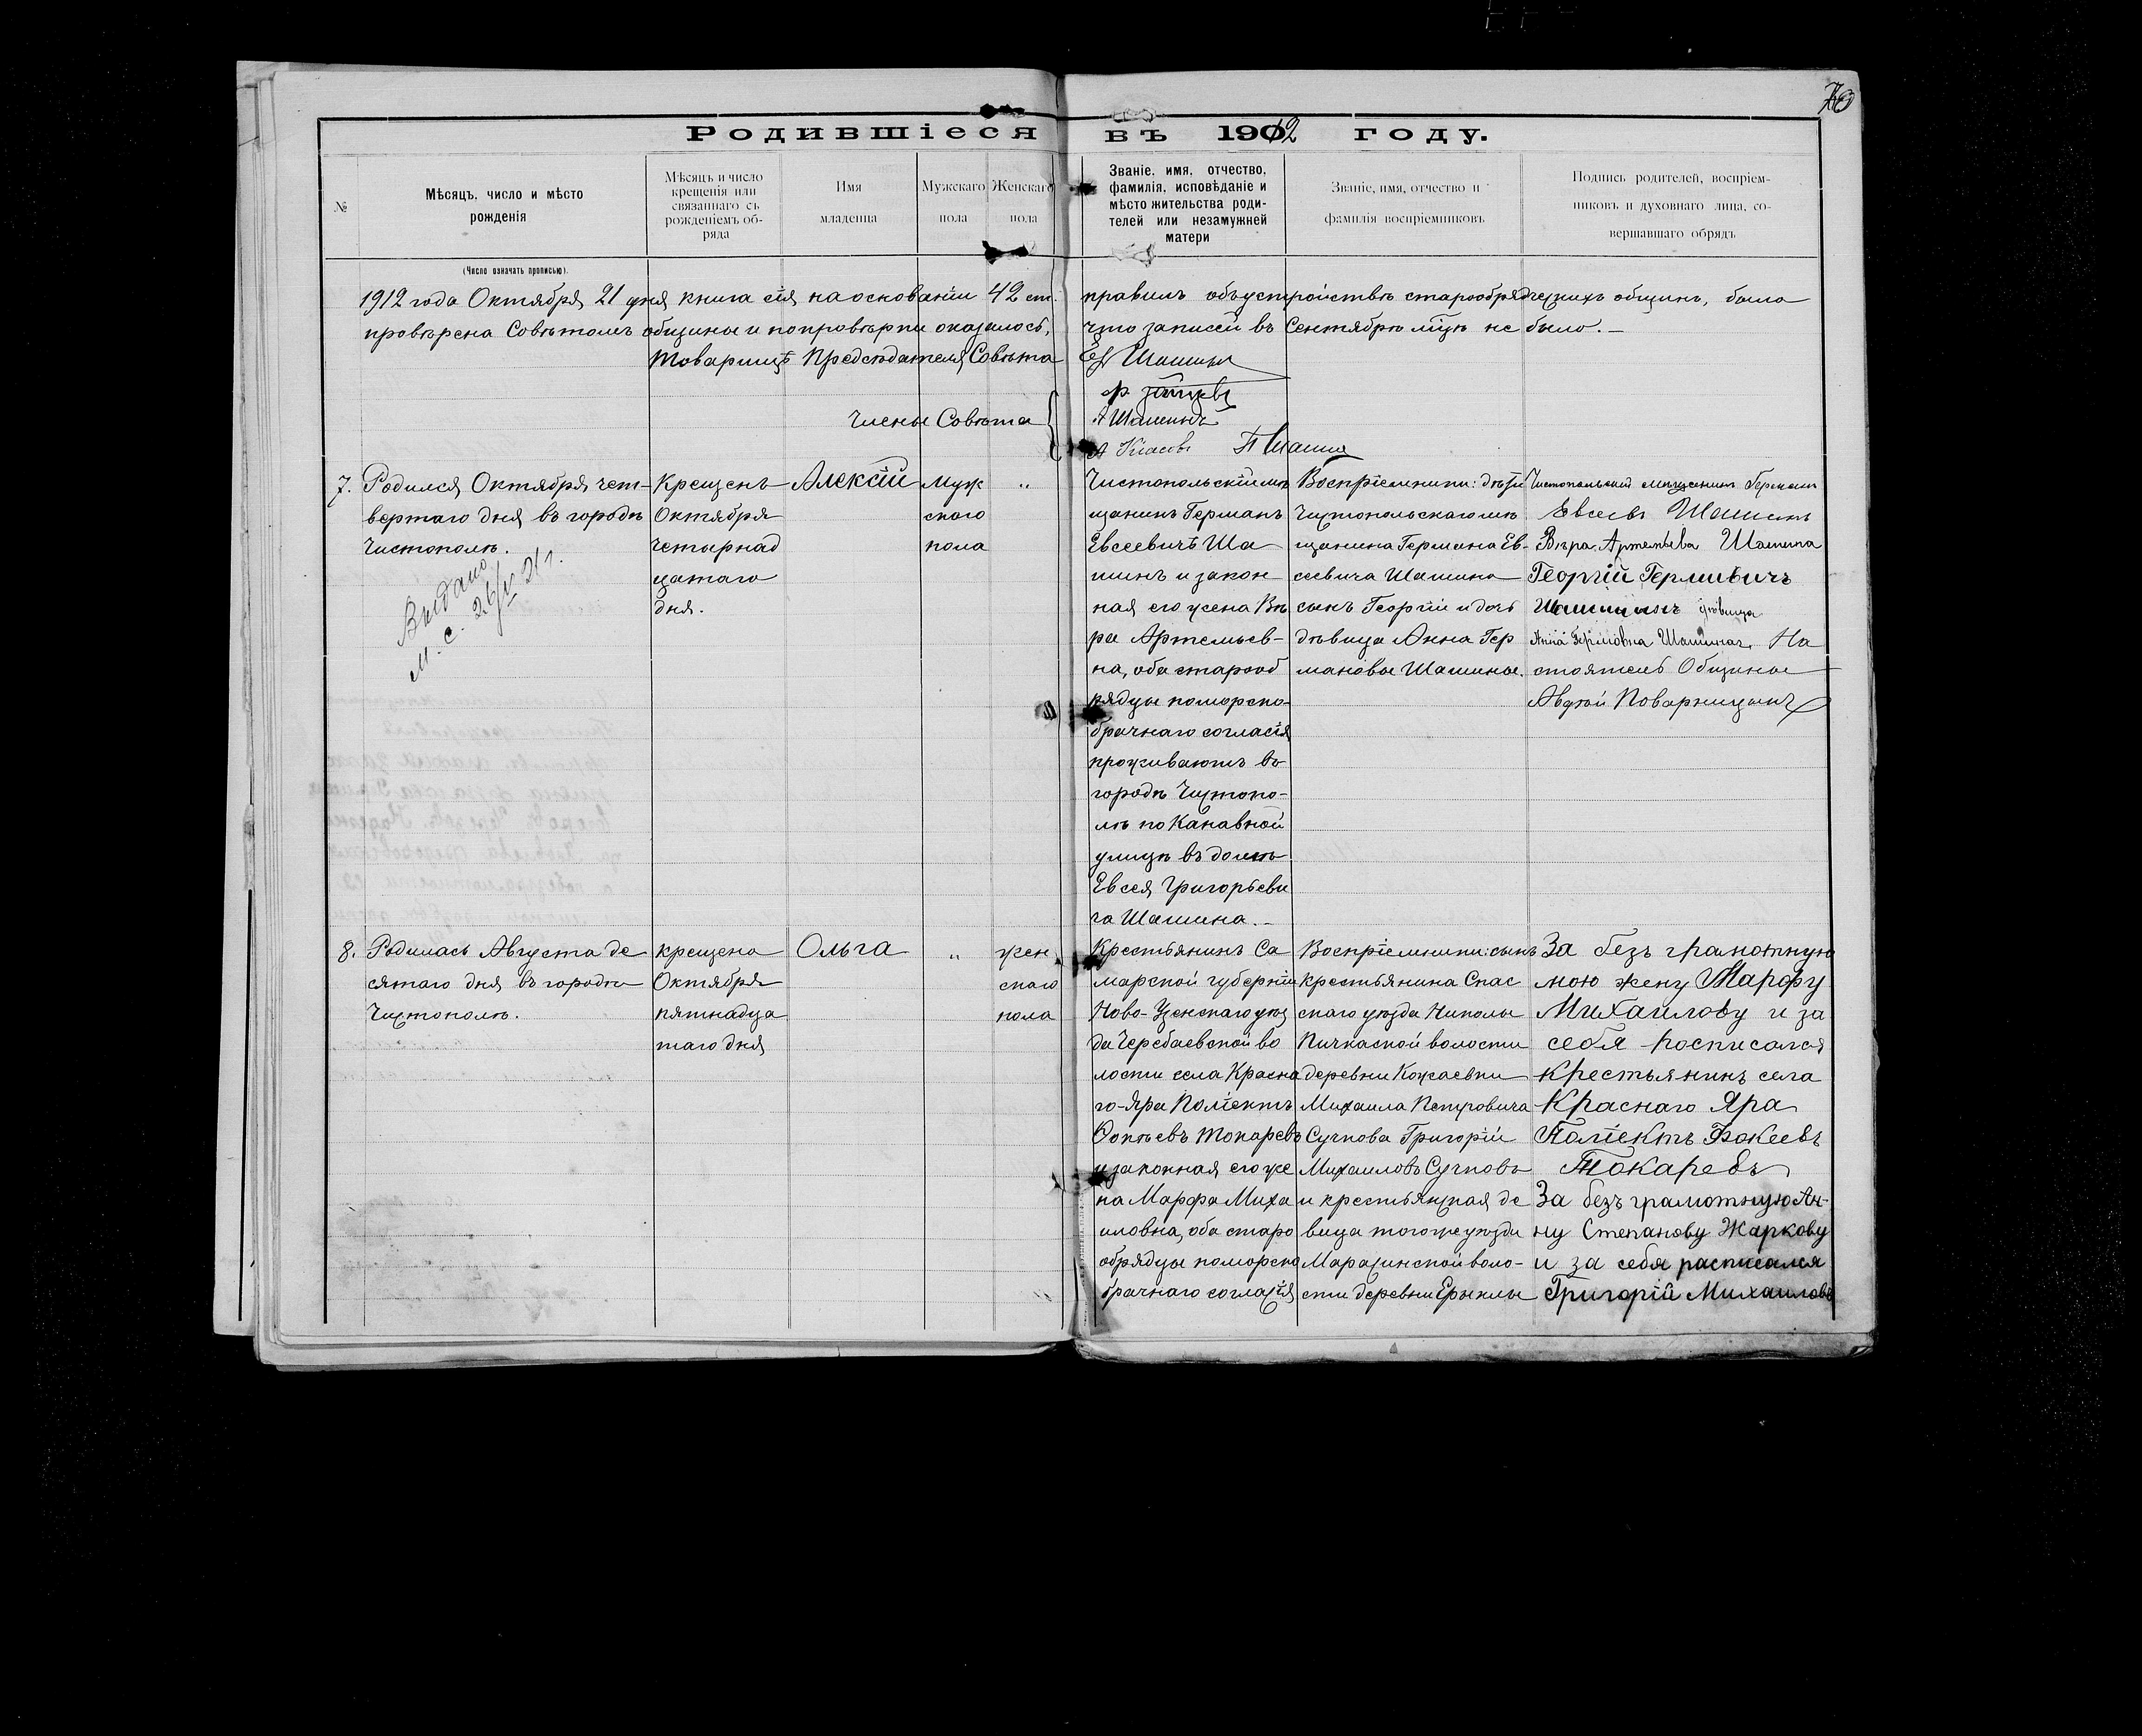 70
Родившіеся въ 1912 году.
№
Мѣсяцъ, число и мѣсто
рожденія
(Число означать прописью).
Мѣсяцъ и число
крещенія или
связаннаго съ
рожденіемъ об-
ряда
Имя
младенца
Мужскаго
пола
Женскаго
пола
Званіе, имя, отчество,
фамилія, исповѣданіе и
мѣсто жительства роди-
телей или незамужней
матери
Званіе, имя, отчество и
фамилія воспріемниковъ
Подпись родителей, воспріем-
никовъ и духовнаго лица, со-
вершавшаго обрядъ
1912 года Октября 21 дня книга сія на основаніи 42 ст. правилъ объ устройствѣ старообрядческихъ общинъ, была
провѣрена Совѣтомъ общины и по провѣрки оказалось, что записей въ Сентябрѣ мцѣ не было. —
Товарищъ Предсѣдателя Совѣта Ев Шашинъ
Члены Совѣта
А Шашинъ
П Шашин
7.
Родился Октября чет-
вертаго дня въ городѣ
Чистополѣ.
Выдано
м. с. 26/V 21 г.
Крещенъ
Октября
четырнад
цатаго
дня.
Алексій
муж
ского
пола
"
Чистопольскій мѣ
щанинъ Германъ
Евсеевичъ Ша
шинъ и закон
ная его жена Вѣ
ра Артемьев-
на, оба старооб
рядцы поморско-
брачнаго согласія
проживаютъ въ
городѣ Чистопо-
лѣ по Канавной
улицѣ въ домѣ
Евсея Григорьеви
ча Шашина. —
Воспріемники: дѣти
Чистопольскаго мѣ
щанина Германа Ев-
сеевича Шашина
сынъ Георгій и дочь
дѣвица Анна Гер
мановы Шашины.
Чистопольскій мѣщанинъ Герман
Евсеевъ Шашинъ
Вѣра Артемьева Шашина
Георгій Гермовичъ
Шашинъ дѣвица
Анна Гермовна Шашина. На
стоятель Общины
Авдѣй Поварницынъ
8.
Родилась Августа де
сятаго дня въ городѣ
Чистополѣ.
крещена
Октября
пятнадца
таго дня
Ольга
"
жен
скаго
пола
Крестьянинъ Са
марской губерніи
Ново-Узенскаго уѣз
да Черебаевской во
лости села Красна
го-Яра Поліектъ
Фокѣевъ Токаревъ
и законная его же
на Марфа Миха
иловна, оба старо
обрядцы поморско
брачнаго согласія
Воспріемники: сынъ
крестьянина Спас
скаго уѣзда Николы
Пичкаской волости
деревни Кожаевки
Михаила Петровича
Сучкова Григорій
Михаиловъ Сучковъ
и крестьянская де
вица тогоже уѣзда
Марасинской воло-
сти деревни Ерыклы
За безъ грамотную
мою жену Марфу
Михаилову и за
себя росписался
крестьянинъ села
Краснаго Яра
Поліектъ Фокеевъ
Токаревъ
За безъ грамотную Ан-
ну Степанову Жаркову
и за себя расписался
Григорій Михаиловъ